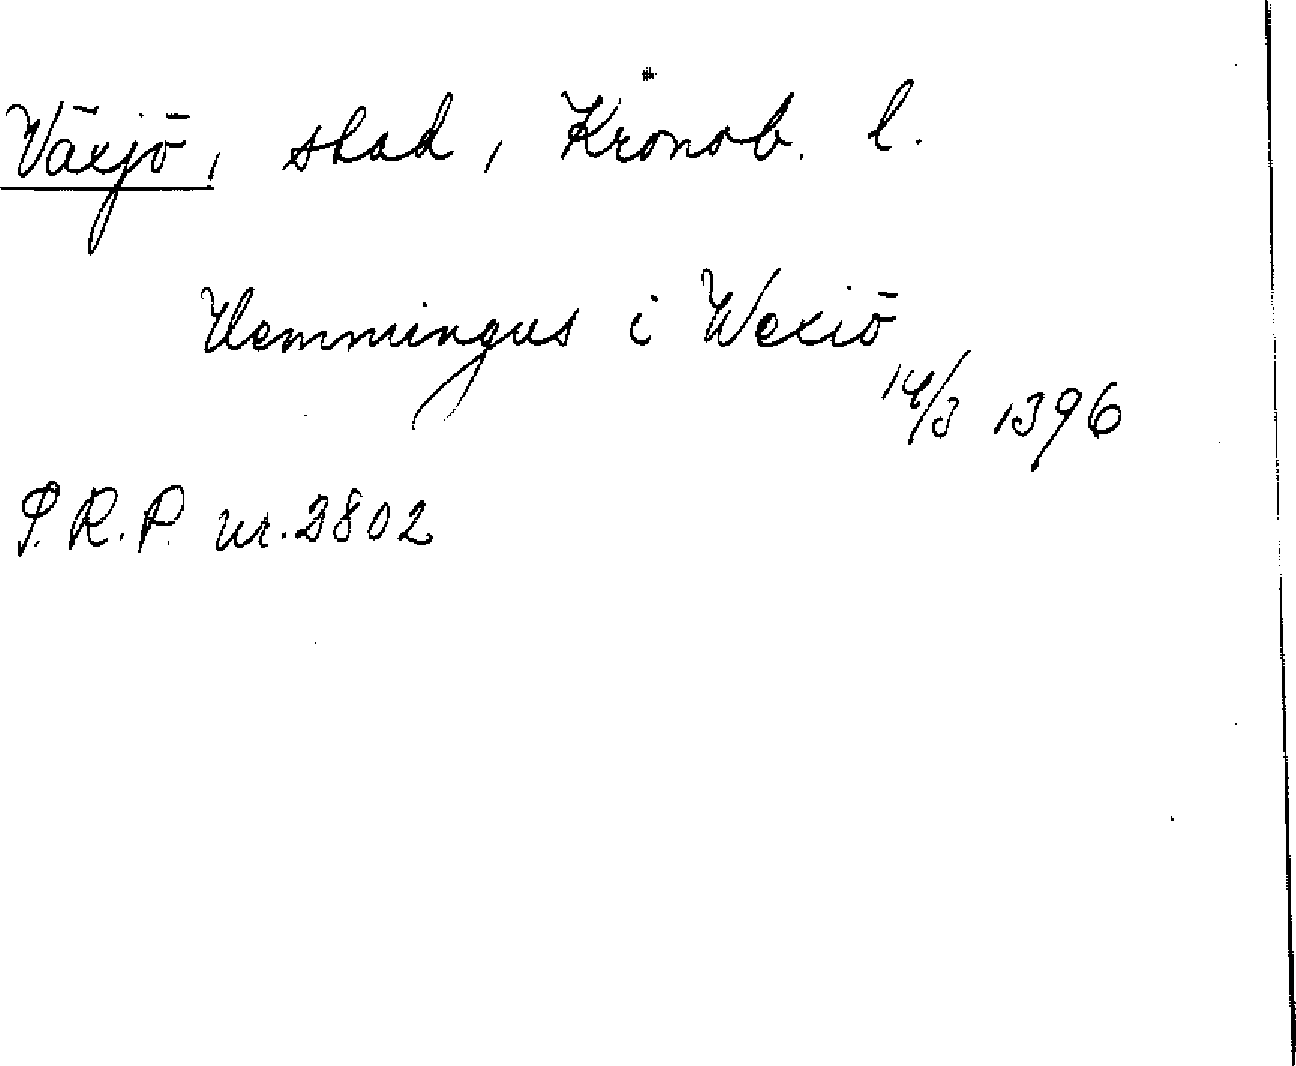 Växjö, stad, Kronob. l.
Hemmingus i Wexiö
14/3 1396
S.R.P. nr. 2802